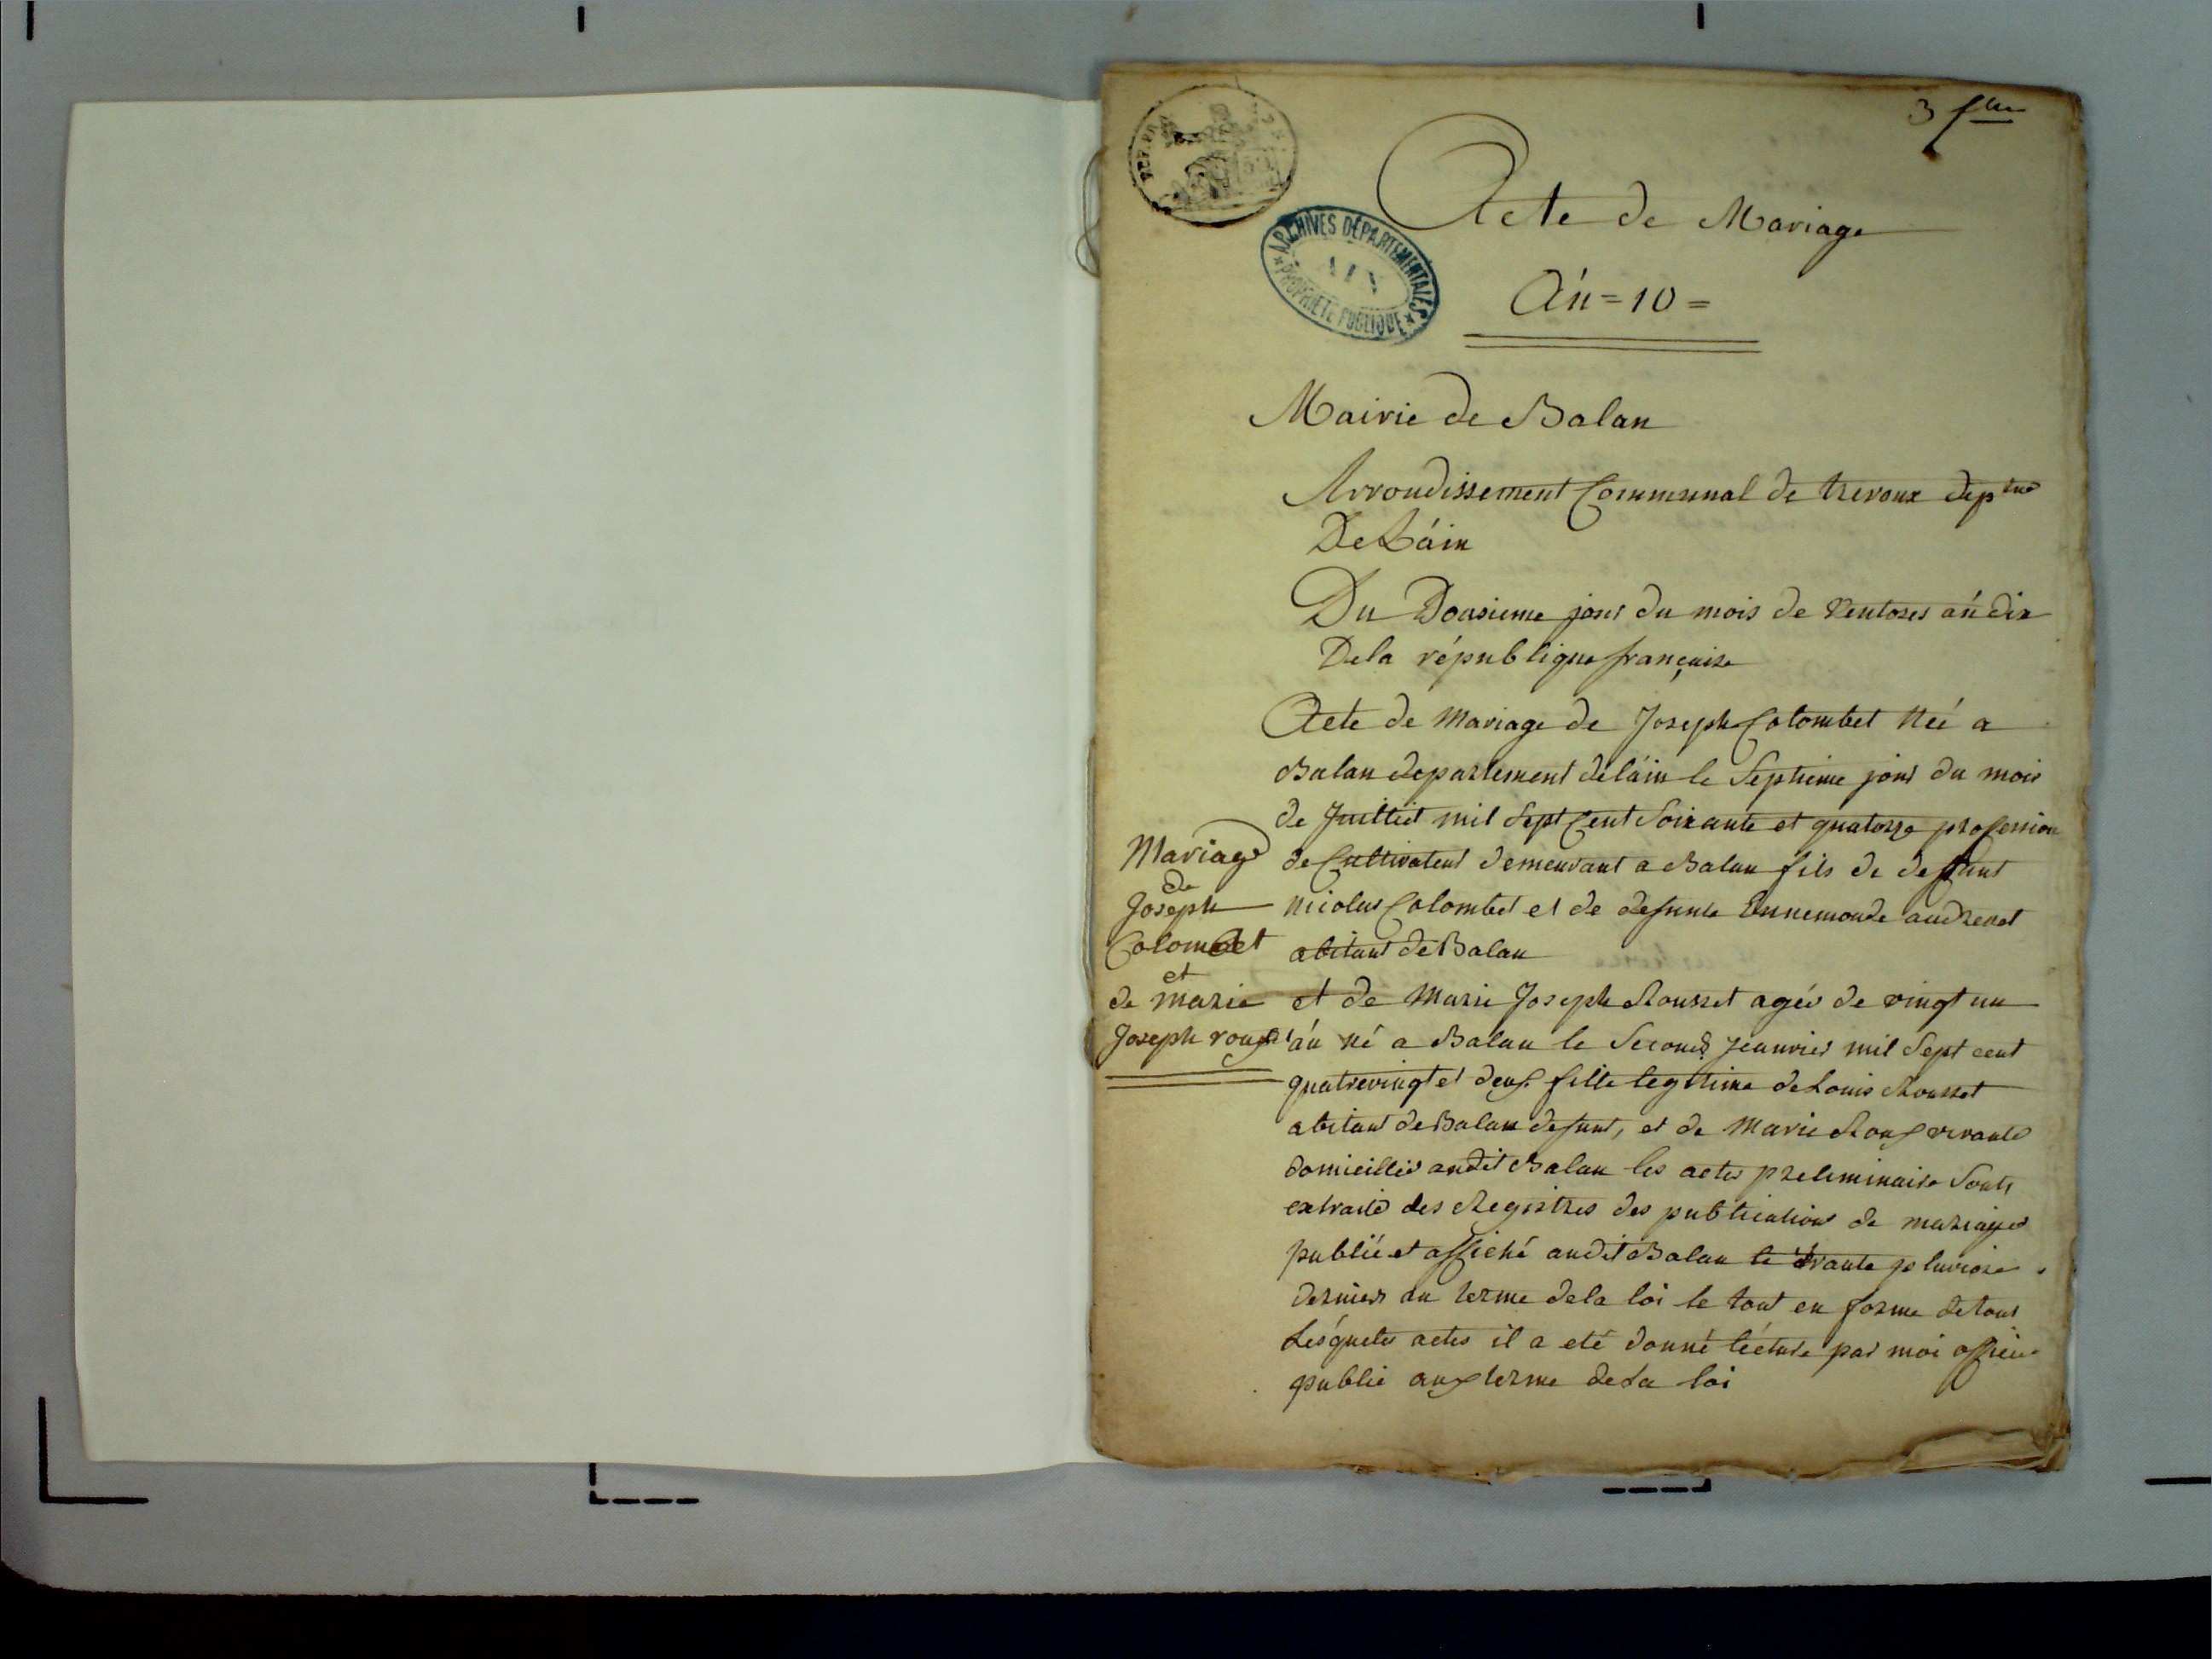 3 f
Acte de Mariage
ARCHIVES DÉPARTEMENTALES
AIN
PROPRIÉTÉ PUBLIQUE
REP. FRA
Án = 10 =
Mairie de Balan
Arrondissement Communal de trevoux dep
De L'áin
Du Dousieme jour du mois de Ventoses án dix
De la république française
Acte de Mariage de Joseph Colombet Neé a
Balan departement de láin le Septieme jour du mois
de Juillet mil Sept Cent Soixante et quatorze profession
de Cultivateur demeurant a Balan fils de deffunt
nicolas Colombet et de defunte Ennemonde audrenet
abitant de Balan
Mariage
de
Joseph
Colombet
et
de marie
Joseph
et de Marie Joseph Rousset agée de vingt un
án né a Balan le Second jeanvier mil Sept cent
quatrevingt et deux fille legitime de Louis Rousset
abitant de Balan defunt, et de Marie Roux vivante
domiciliée audit Balan les actes preliminaire Sonts
extraits des Registres des publications de mariages
publié et affiché audit Balan le trante pluviose
dernier au terme de la loi le tout en forme de tous
Lesquels actes il a eté donné lécture par moi officier
public aux terme de La loi